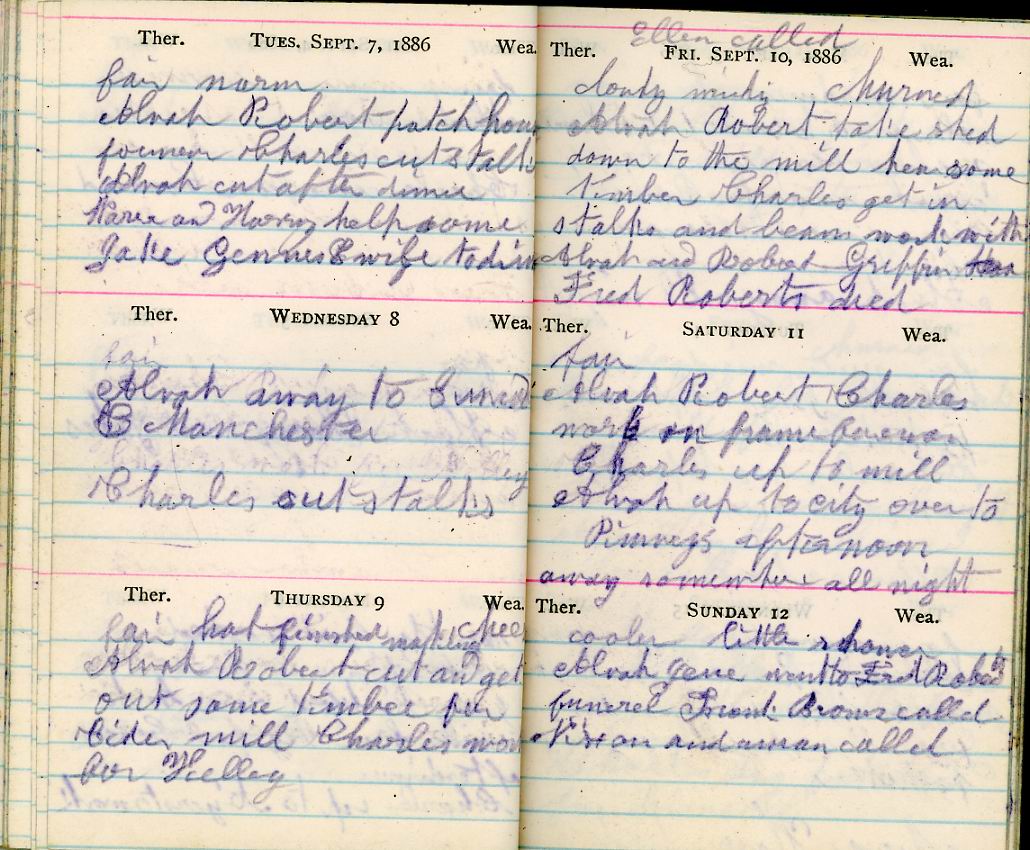 Ther. TUES. SEPT. 7, 1886 Wea.
fair warm
Alvah Robert patch hou
forenoon Charles cut stalk
Alvah cut after
and Harry help some
Jake & wife to din
Ther. WEDNESDAY 8 Wea.
fair
Alvah away to
Manchester
Charles cut stalks
Ther. THURSDAY 9 Wea.
fair hot finished making chee
Alvah Robert cut and get
out some timber for
Cider mill Charles wor
for Kelley
Ellen called
Ther. FRI. SEPT. 10, 1886 Wea.
cloudy windy Churned
Alvah Robert take shed
down to the mill hew some
timber Charles get in
stalks and beans work with
Alvah and Robert Griffin
Fred Roberts died
Ther. SATURDAY 11 Wea.
fair
Alvah Robert Charles
work on frame forenoon
Charles up to mill
Alvah up to city over to
Pinneys afternoon
away somewhere all night
Ther. SUNDAY 12 Wea.
cooler little shower
Alvah gone went to Fred Roberts
funerel Frank Brown called
Nixon and a man called